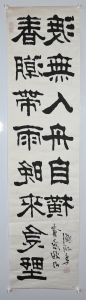 春潮帶雨晚來急野
渡無人舟自橫